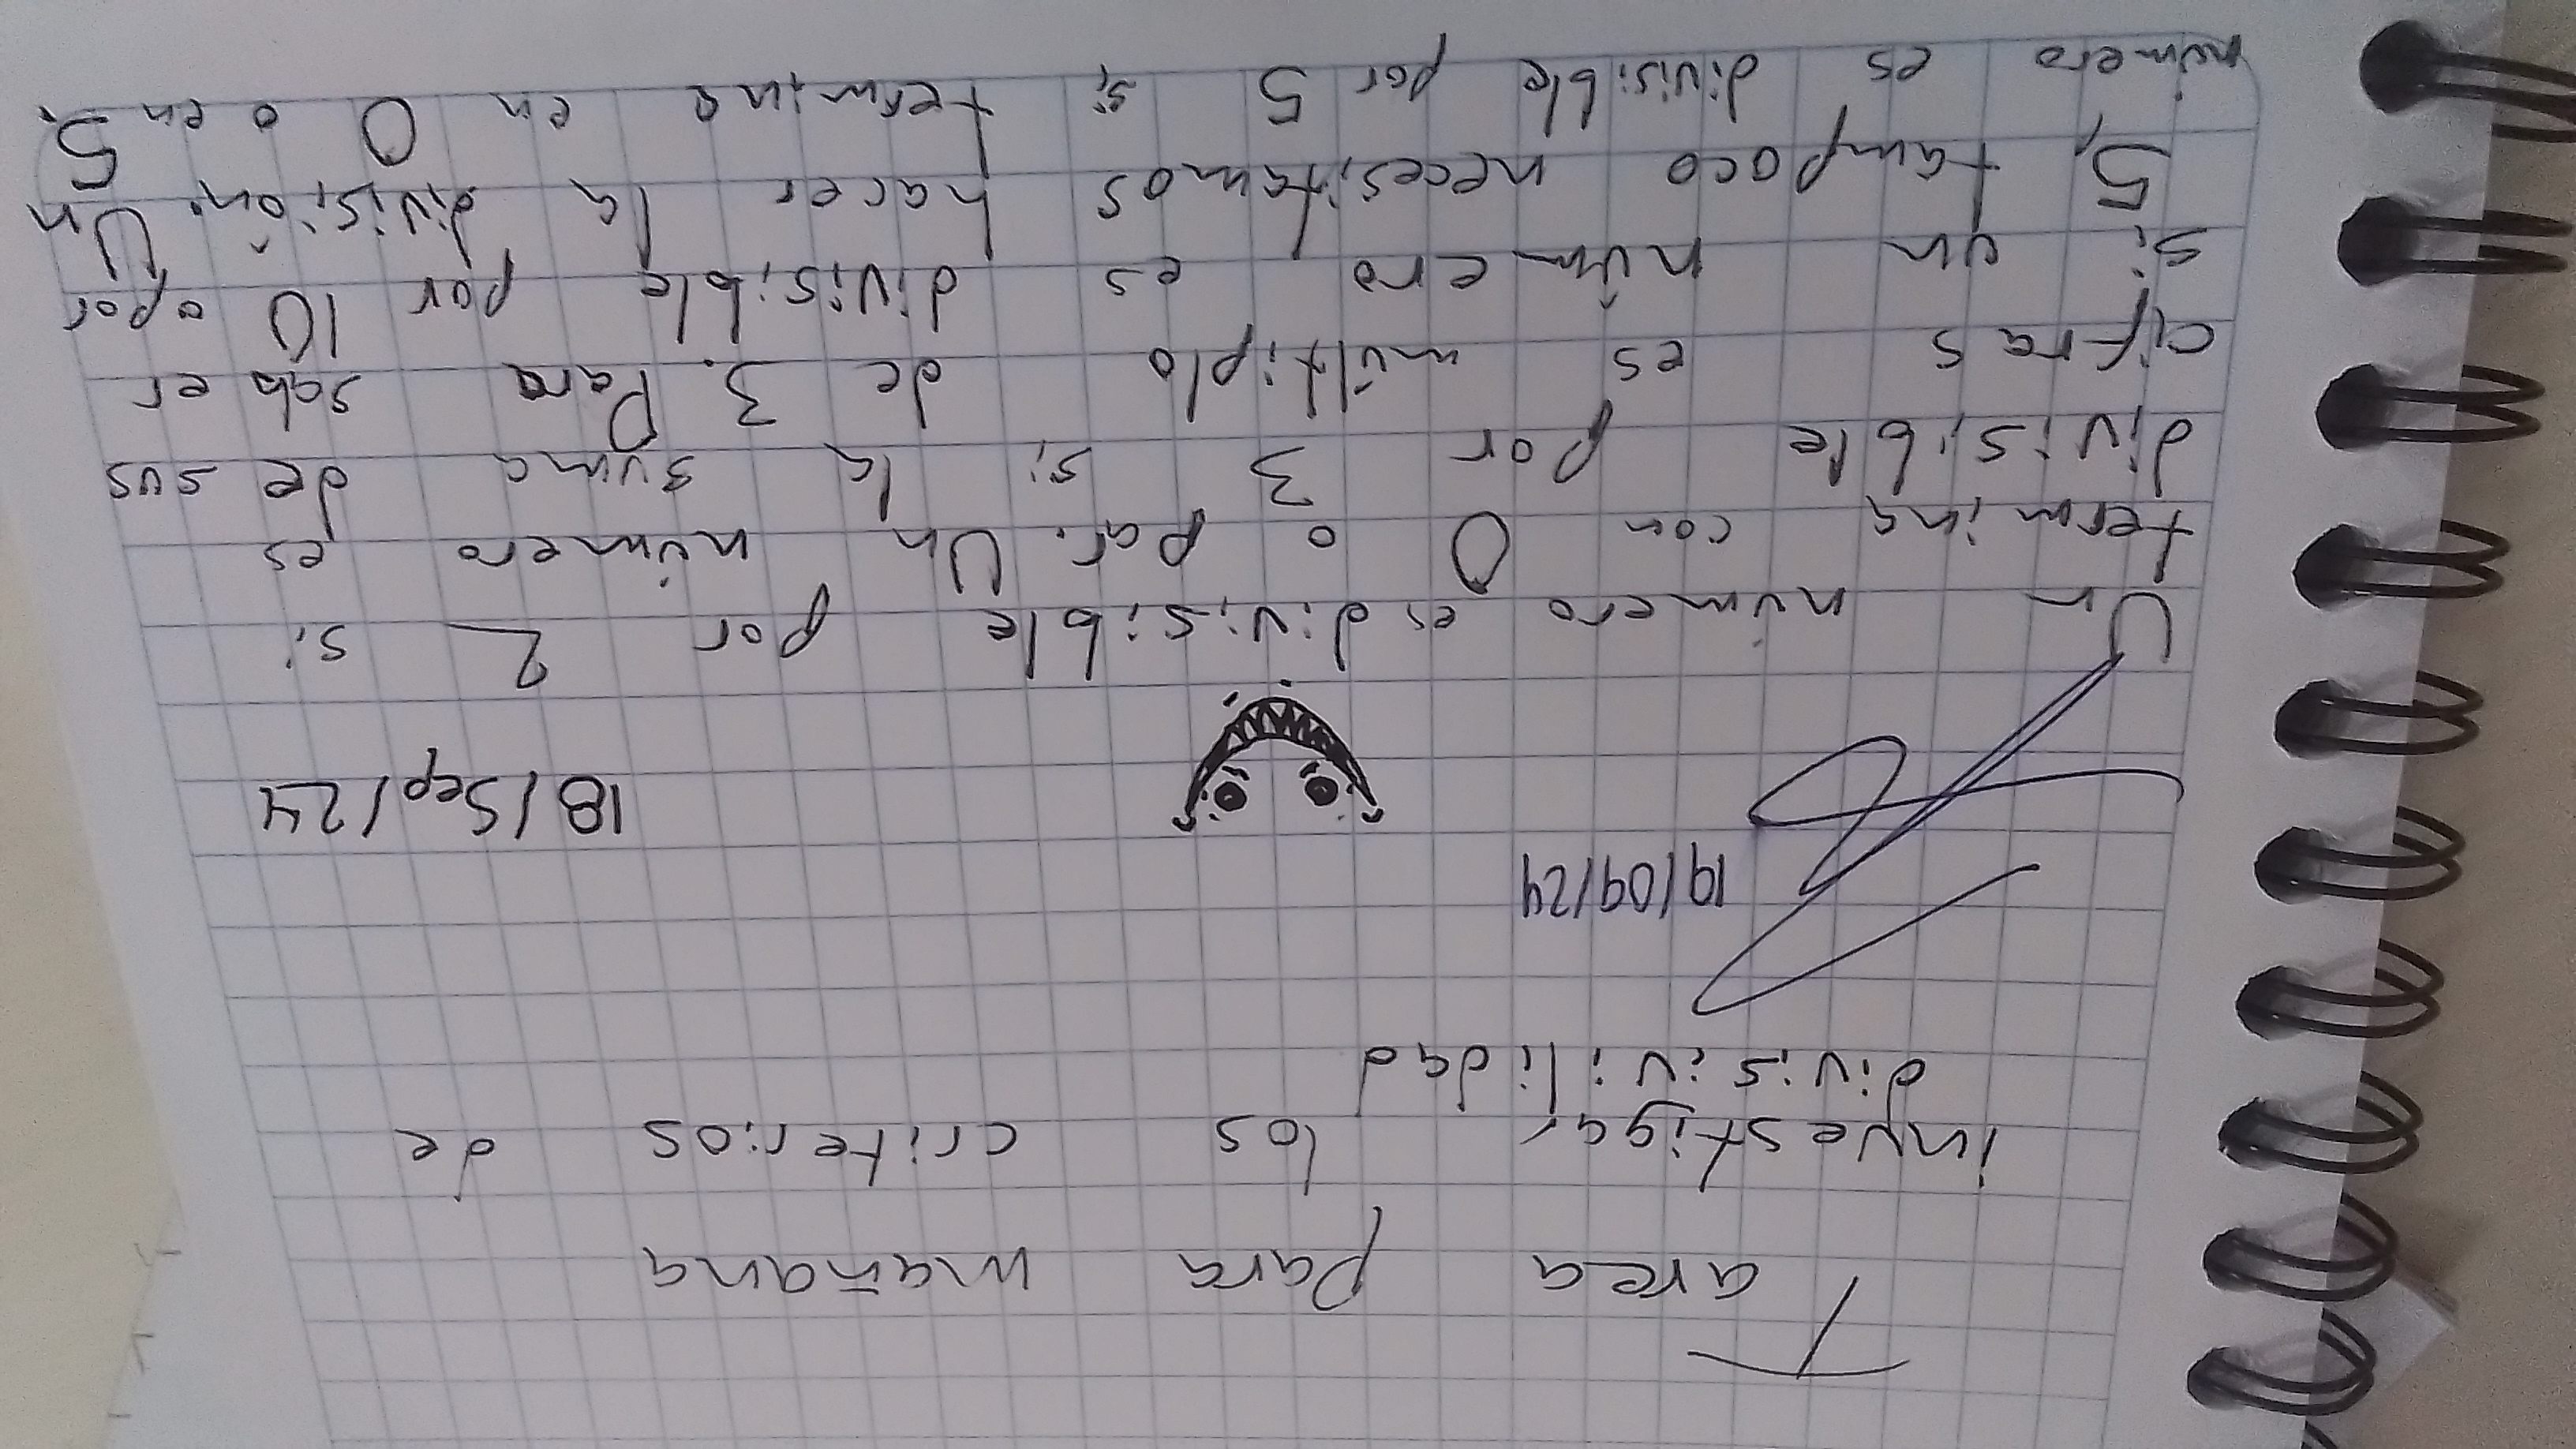 Tarea para mañana
investigar los criterios de
divisivilidad
19/09/24
18/Sep/24
Un número es divisible por 2 si
termina con 0 o par. Un número es
divisible por 3 si la suma de sus
cifras es múltiplo de 3. Para saber
si un número es divisible por 10 o por
5, tampoco necesitamos hacer la división. Un
número es divisible por 5 si termina en 0 o en 5.